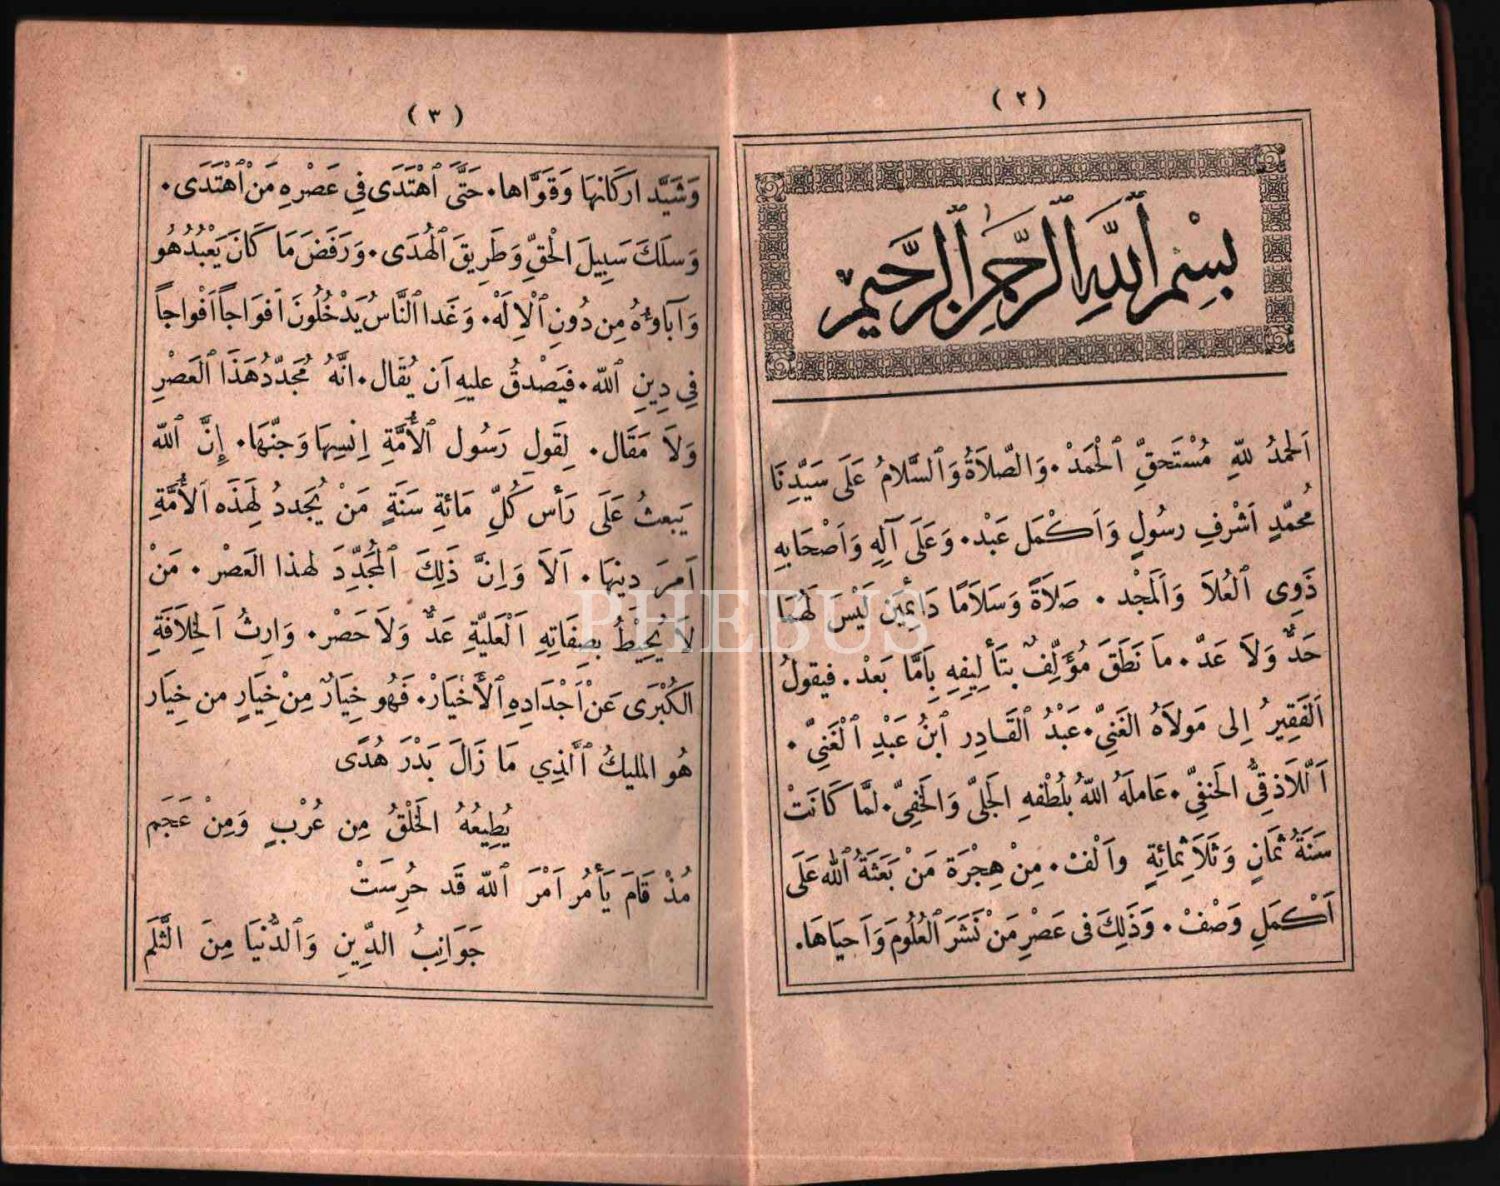 ( ٢ )
بِسْمِ ٱللَّهِ ٱلرَّحْمٰنِ ٱلرَّحِيمِ
اَلحَمدُ للهِ مُسْتَحقِّ ٱلْحَمدْ ۰ وَالصَّلَاةُ وَٱلسَّلَامُ عَلَى سَيِّدِنَا
مُحمَّدٍ اَشْرفِ رسُولٍ وَاَكْمَلِ عَبْد ۰ وَعَلَى آلِهِ وَاَصْحَابِهِ
ذَوِى ٱلعُلَا وَٱلمَجْد ۰ صَلَاةً وَسَلَامًا دَائِمَينِ لَيْسَ لَهُمَا
حَدٌّ وَلَا عَدّ ۰ مَا نَطَقَ مُؤَلِّفٌ بتَألِيفِهِ بِاَمَّا بَعَدْ ۰ فيقولُ
اَلفَقِيرُ اِلى مَولَاهُ الغَنِيِّ ۰ عَبْدُ ٱلقَادِر ٱبنُ عَبْدِ ٱلْغَنِيِّ ۰
اَللَّاذقِىُّ الحَنفِيِّ ۰ عَامَلَهُ اللهُ بلُطْفهِ الجَلِىِّ وَالخَفِيِّ ۰ لمَّا كَانَتْ
سَنَةُ ثمَانٍ وَثلَاثِمِائِةٍ واَلْف ۰ مِنْ هِجْرَة مَنْ بَعَثَهُ ٱلله عَلَى
اَكْمَلِ وَصْفْ ۰ وَذَلِكَ فى عَصْرِ مَنْ نَشَرَ ٱلعُلُومَ وَاَحيَاهَا ۰
( ٣ )
وَشَيَّد اركَانهَا وَقوَّاها ۰ حَتَّى ٱهْتَدَى فِي عَصْرِهِ مَن ٱهْتَدَى ۰
وَسلَكَ سَبِيلَ الْحَقِّ وَطَرِيقَ ٱلهُدَى ۰ وَرَفَضَ مَا كَانَ يَعْبُدُهُو
وَآباؤُهُ مِن دُونِ ٱلْاِلَهْ ۰ وَغَدا ٱلنَّاسُ يَدْخُلُونَ اَفوَاجاً اَفْواجاً
فِي دِينِ ٱلله ۰ فيَصْدقُ عليهِ اَن يُقَال ۰ انَّهُ مُجَدّدُ هَذَا ٱلعَصْرِ
وَلَا مَقَال ۰ لِقَولِ رَسُول ٱلأُمَّةِ اِنسِهَا وَجنِّهَا ۰ إِنَّ ٱللّه
يَبعثُ عَلَى رَأسِ كُلِّ مَائةِ سَنَةٍ مَنْ يُجَددُ لِهَذه ٱلأُمَّةِ
اَمرَ دِينهَا ۰ اَلَا وَاِنَّ ذَلِكَ ٱلمُجَدِّدَ لهذا العَصرْ ۰ مَنْ
لَا يُحِيْطُ بصِفَاتِهِ ٱلْعَليَّةِ عَدٌّ وَلَا حَصْر ۰ وَارِثُ اَلخِلَافَةِ
اَلكُبْرَى عَنْ اَجْدَادِهِ ٱلأَخيَارْ ۰ فَهُو خِيَارٌ مِنْ خِيَارٍ من خِيَار
هُو المليكُ ٱلَّذِي مَا زَالَ بَدْرَ هُدًى
يُطِيعُهُ الخَلْقُ مِن عُرْبٍ وَمِنْ عَجَم
مُذْ قَامَ يَأمُر اَمْرَ ٱلله قَد حُرِسَتْ
جَوَانِبُ الدِّينِ وَٱلدُّنيَا مِنَ الثَّلَم
PHEBUS